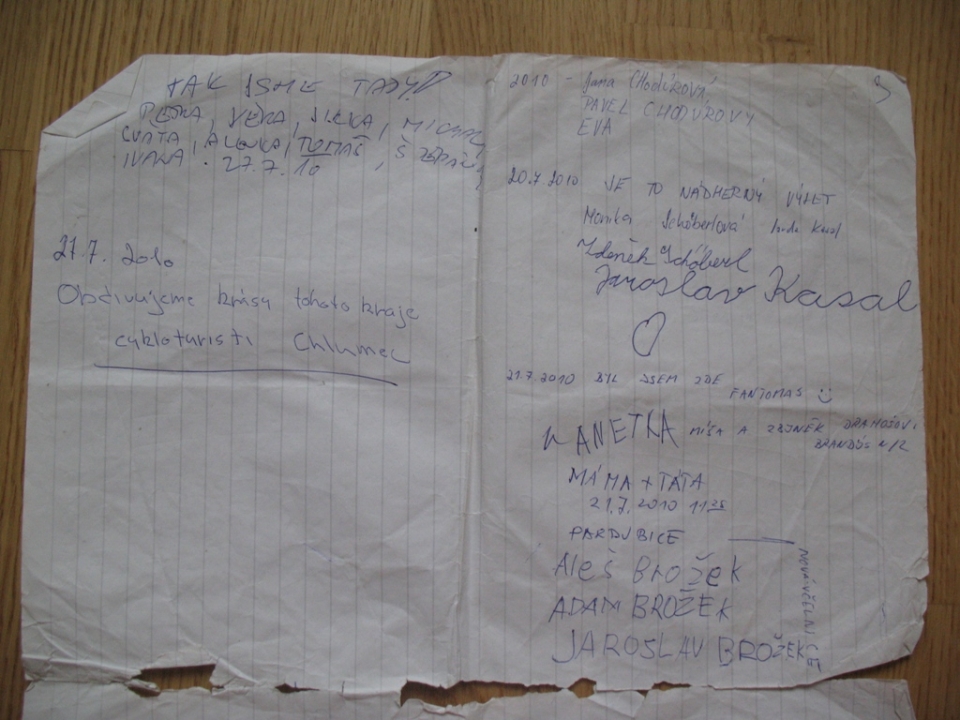 TAK JSME TADY!
PETRA, VĚRA, JIRKA, MICHAL,
CVATA, ALENKA, TOMÁŠ, ŠTĚPÁN,
IVANA. 27.7.10
27.7. 2010
Obdivujeme krásy tohoto kraje
cykloturisti Chlumec
3
2010 - Jana CHODŮROVÁ,
PAVEL CHODŮROVÝ
EVA
20.7 2010 JE TO NÁDHERNÝ VÝLET
Monika Schöberlová
Zdeněk Schöberl
Jaroslav Kasal
21.7.2010 BYL JSEM ZDE
FANTOMAS
ANETKA MÍŠA A ZBYNĚK DRAHOŠOVI
BRANDÝS N/L
MÁMA + TÁTA
21.7. 2010 11 25
PARDUBICE
Aleš BROŽEK
ADAM BROŽEK
JAROSLAV BROŽEK